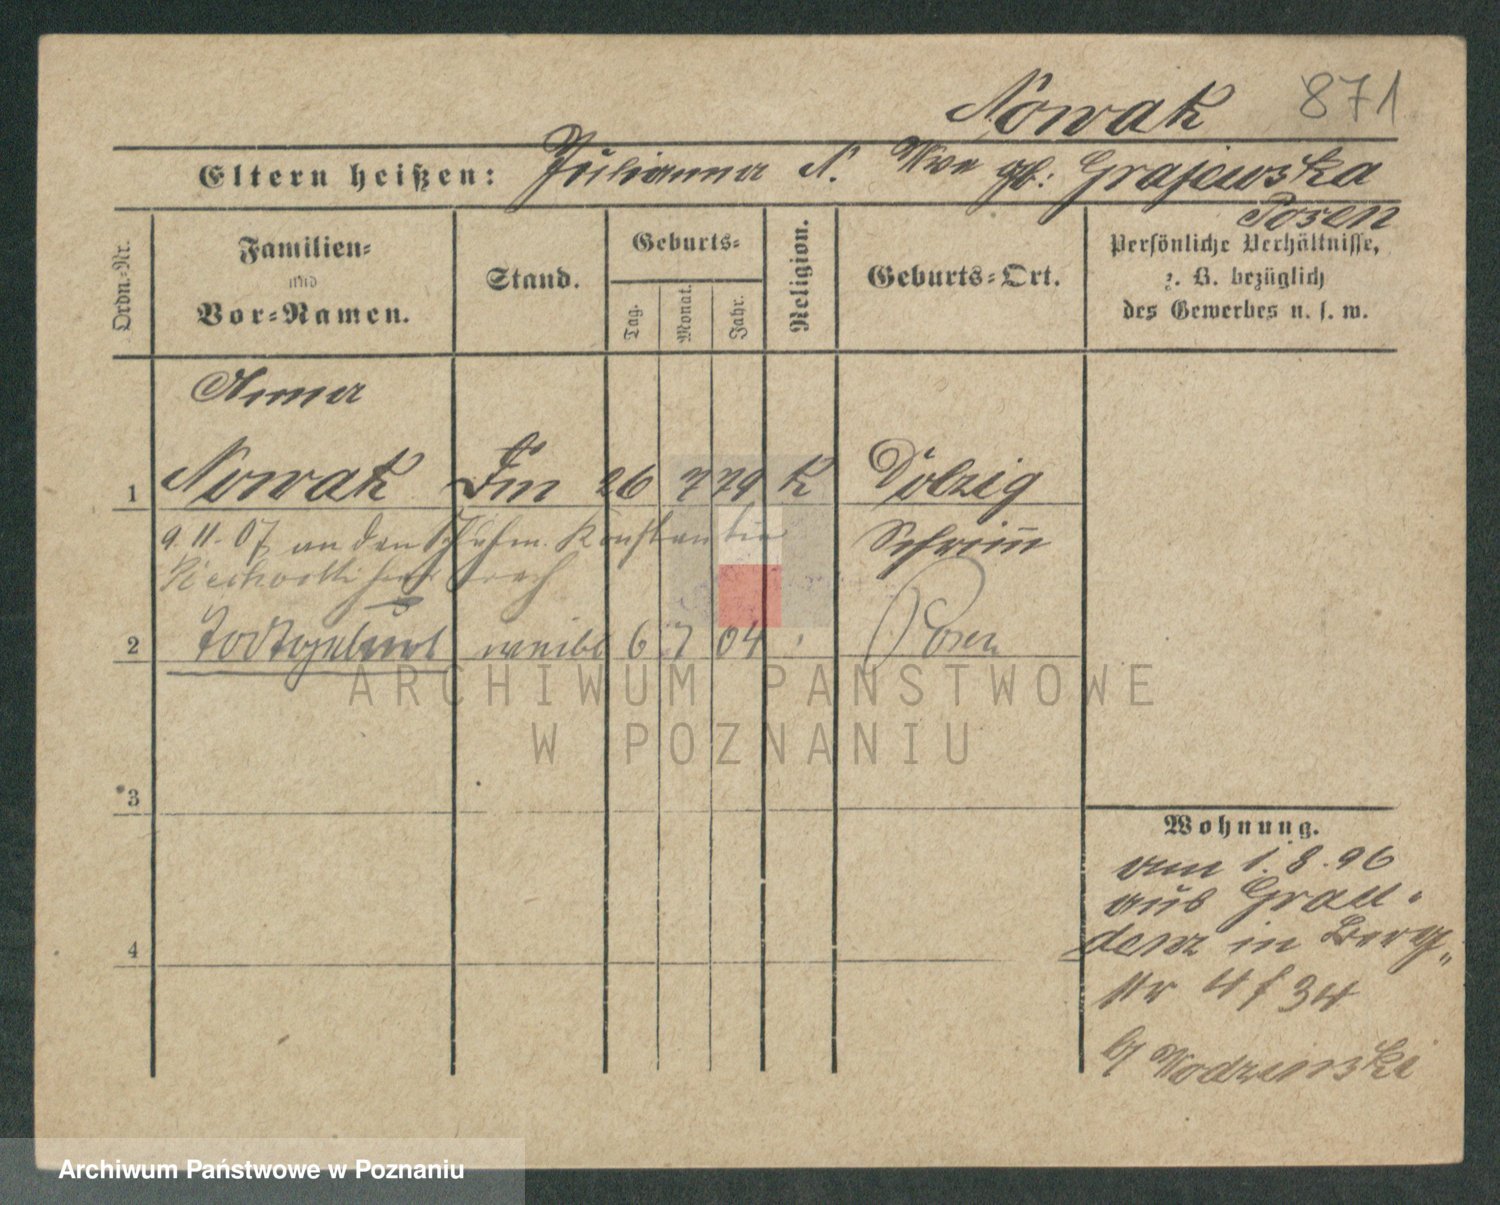 Nowak 871
Eltern heißen: Julianna N. Wwe gb: Grajewska
Posen
Ordn.-Nr.
Familien-
und
Vor-Namen.
Stand.
Geburts-
Tag.
Monat.
Jahr.
Religion.
Geburts-Ort.
Persönliche Verhältnisse,
z. B. bezüglich
des Gewerbes u. s. w.
Anna
1 Nowak 26 7 79 K Dolzig
9.11.07 an den Konstantin Schrimm
2 Todtgeburt weibl 6 7 04 Posen
ARCHIWUM PAŃSTWOWE
W POZNANIU
3
Wohnung.
am 1.8.96
aus Grau-
denz in Berg
4
Nr 4 f 34
b/ Wodzinski
Archiwum Państwowe w Poznaniu